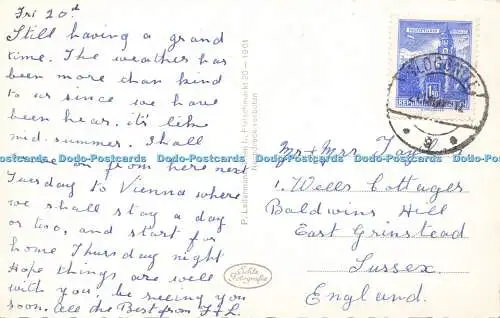 Fri 20d
Still having a grand
time. The weather has
been more than kind
to us since we have
been hear. it's like
mid-summer. I hall
on from here next
Tuesday to Vienna where
we shall stay a day
or two, and start for
home Thursday night
Hope things are well
with you, be seeing you
soon. All the Best from J+L.
Echte Fotografie
Mr & Mrs
1. Wells Cottages
Baldwins Hill
East Grinstead
Sussex.
England.
Dodo-Postcards Dodo-Postcards Dodo-Postcards Dodo-Postcards Dodo-Postcards
Dodo-Postcards Dodo-Postcards Dodo-Postcards Dodo-Postcards Dodo-Postcards